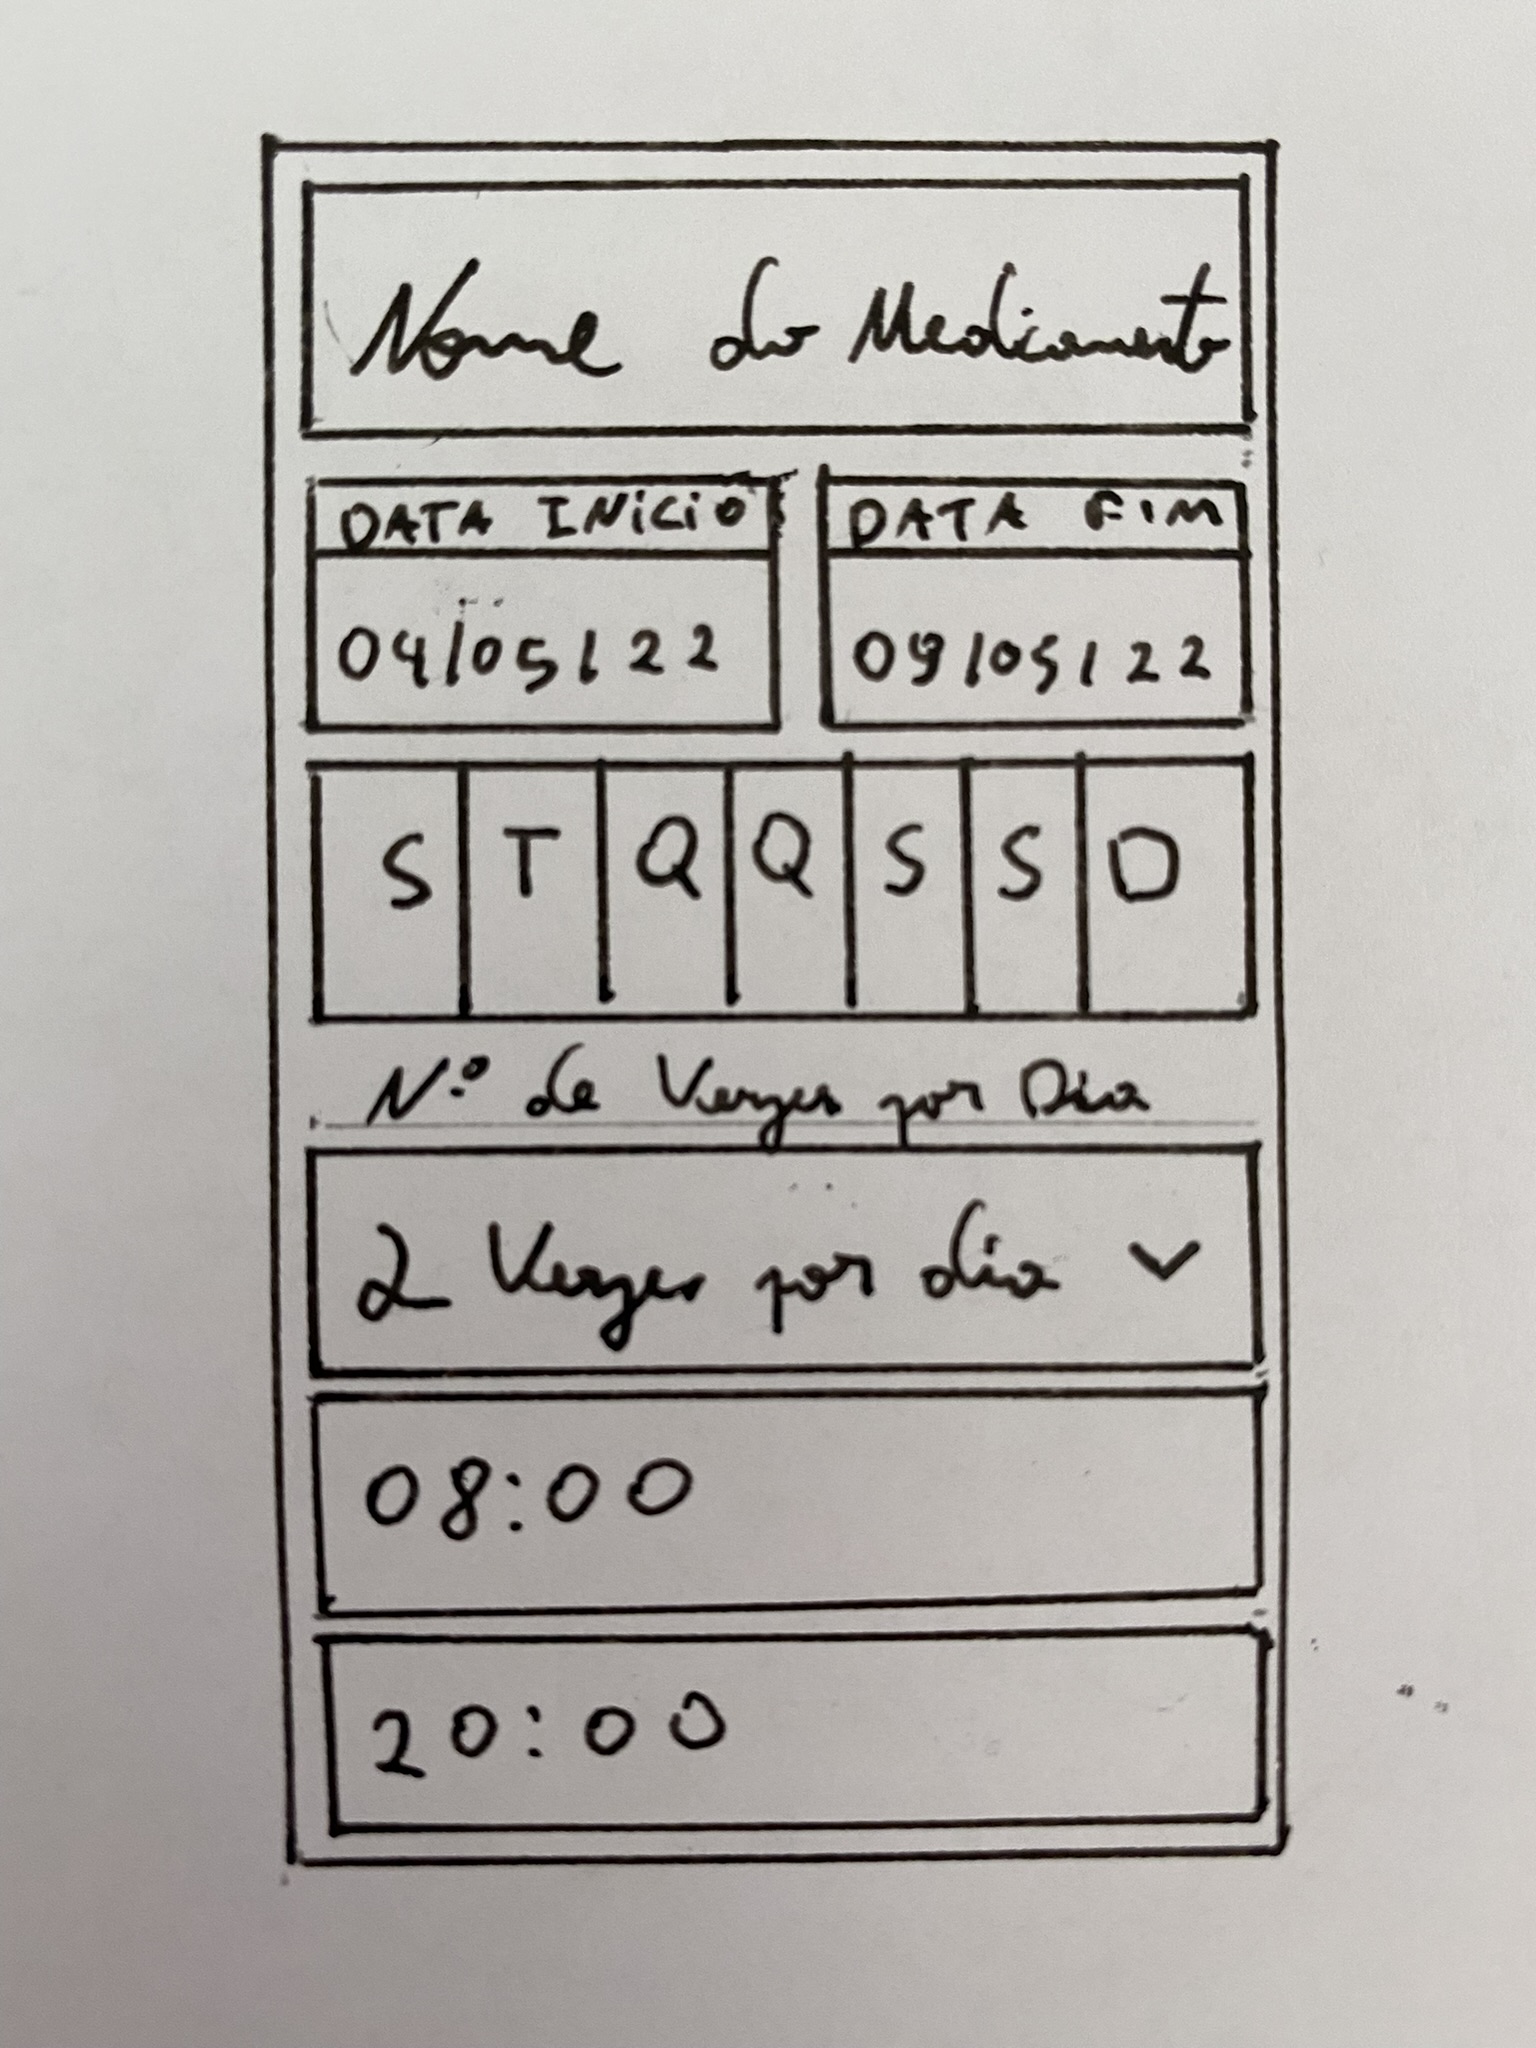 Nome do Medicamento
DATA INÍCIO
DATA FIM
04/05/22
09/05/22
S T Q Q S S D
N.º de Vezes por Dia
2 Vezes por dia
08:00
20:00